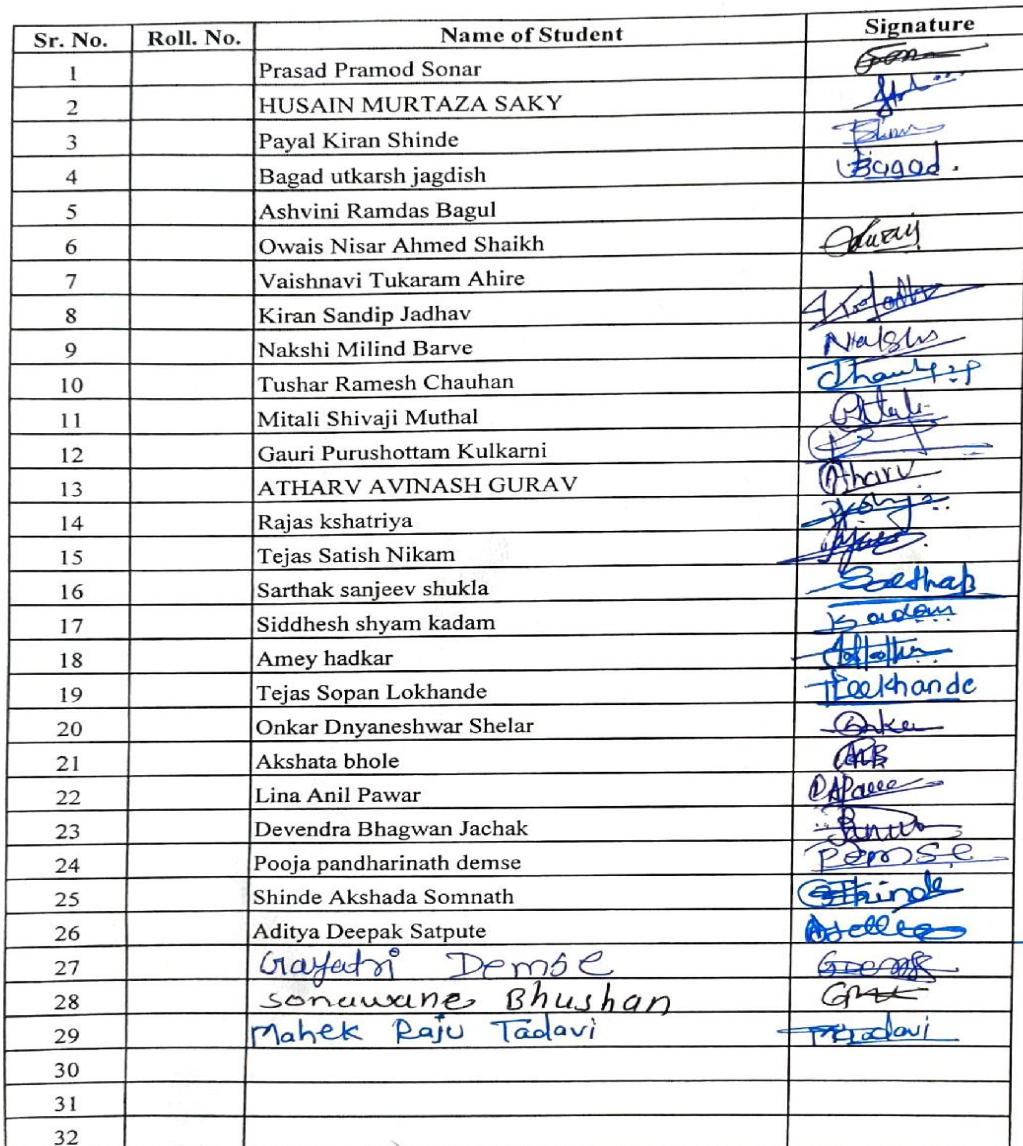 Sr. No. Roll. No. Name of Student Signature
1 Prasad Pramod Sonar
2 HUSAIN MURTAZA SAKY
3 Payal Kiran Shinde
4 Bagad utkarsh jagdish Bagad.
5 Ashvini Ramdas Bagul
6 Owais Nisar Ahmed Shaikh
7 Vaishnavi Tukaram Ahire
8 Kiran Sandip Jadhav
9 Nakshi Milind Barve
10 Tushar Ramesh Chauhan
11 Mitali Shivaji Muthal
12 Gauri Purushottam Kulkarni
13 ATHARV AVINASH GURAV Atharv
14 Rajas kshatriya
15 Tejas Satish Nikam
16 Sarthak sanjeev shukla
17 Siddhesh shyam kadam Kadam
18 Amey hadkar
19 Tejas Sopan Lokhande
20 Onkar Dnyaneshwar Shelar
21 Akshata bhole
22 Lina Anil Pawar
23 Devendra Bhagwan Jachak
24 Pooja pandharinath demse Demse
25 Shinde Akshada Somnath
26 Aditya Deepak Satpute
27 Gayatri Demse
28 Sonawane Bhushan
29 Mahek Raju Tadavi
30
31
32